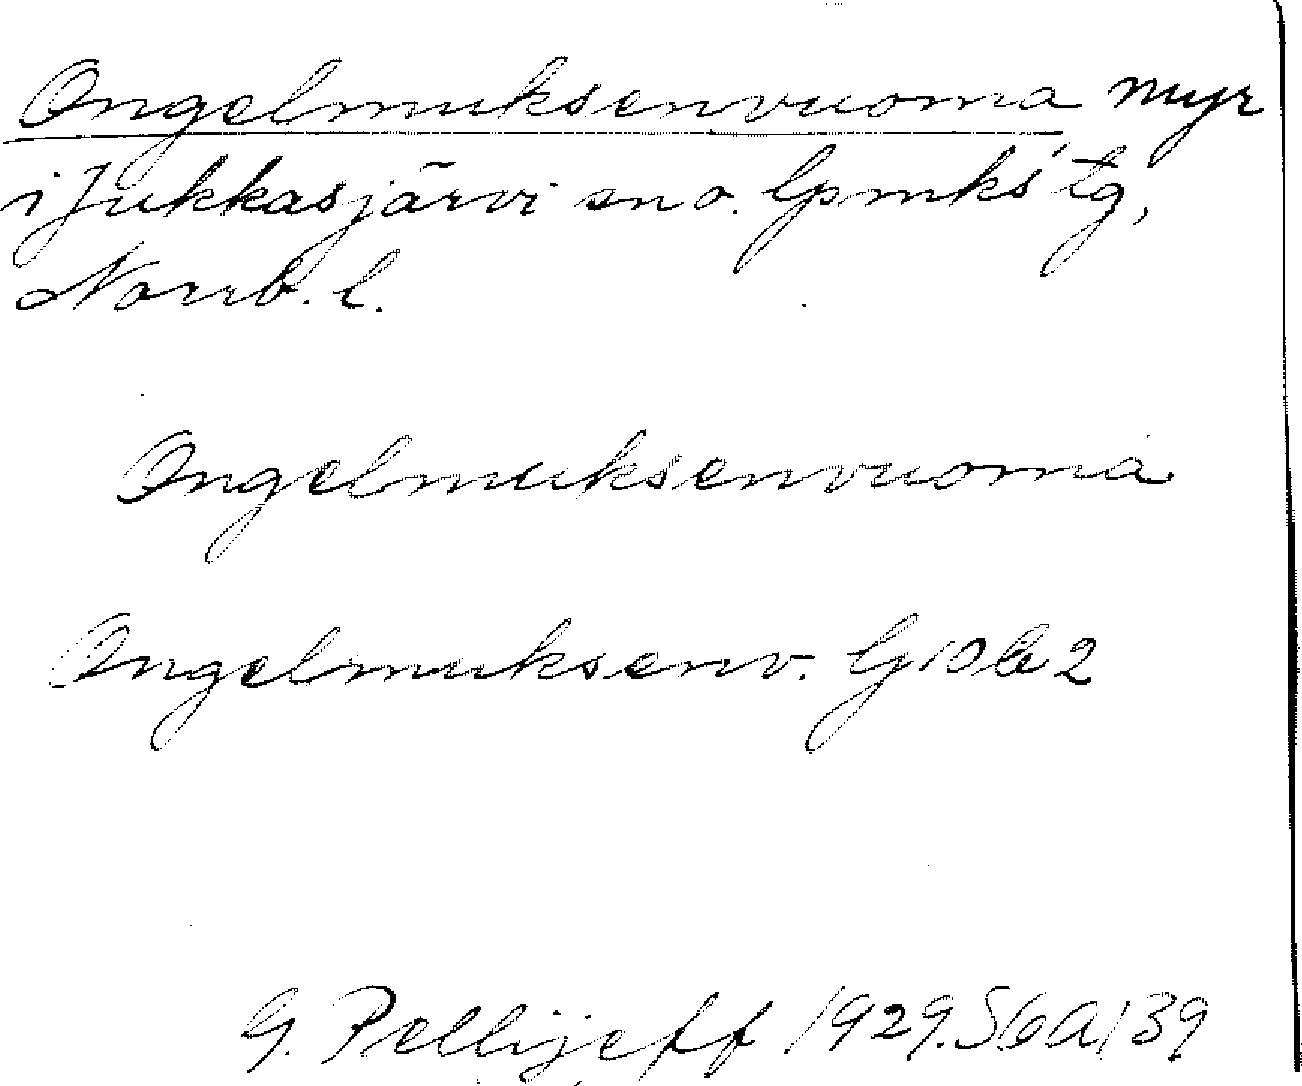 Ongelmuksenvuoma myr
i Jukkasjärvi sn o. lpmks' tg,
Norrb. l.
Ongelmuksenvuoma
Ongelmuksenv. G10b2
G. Pellijeff 1929. S6a/39